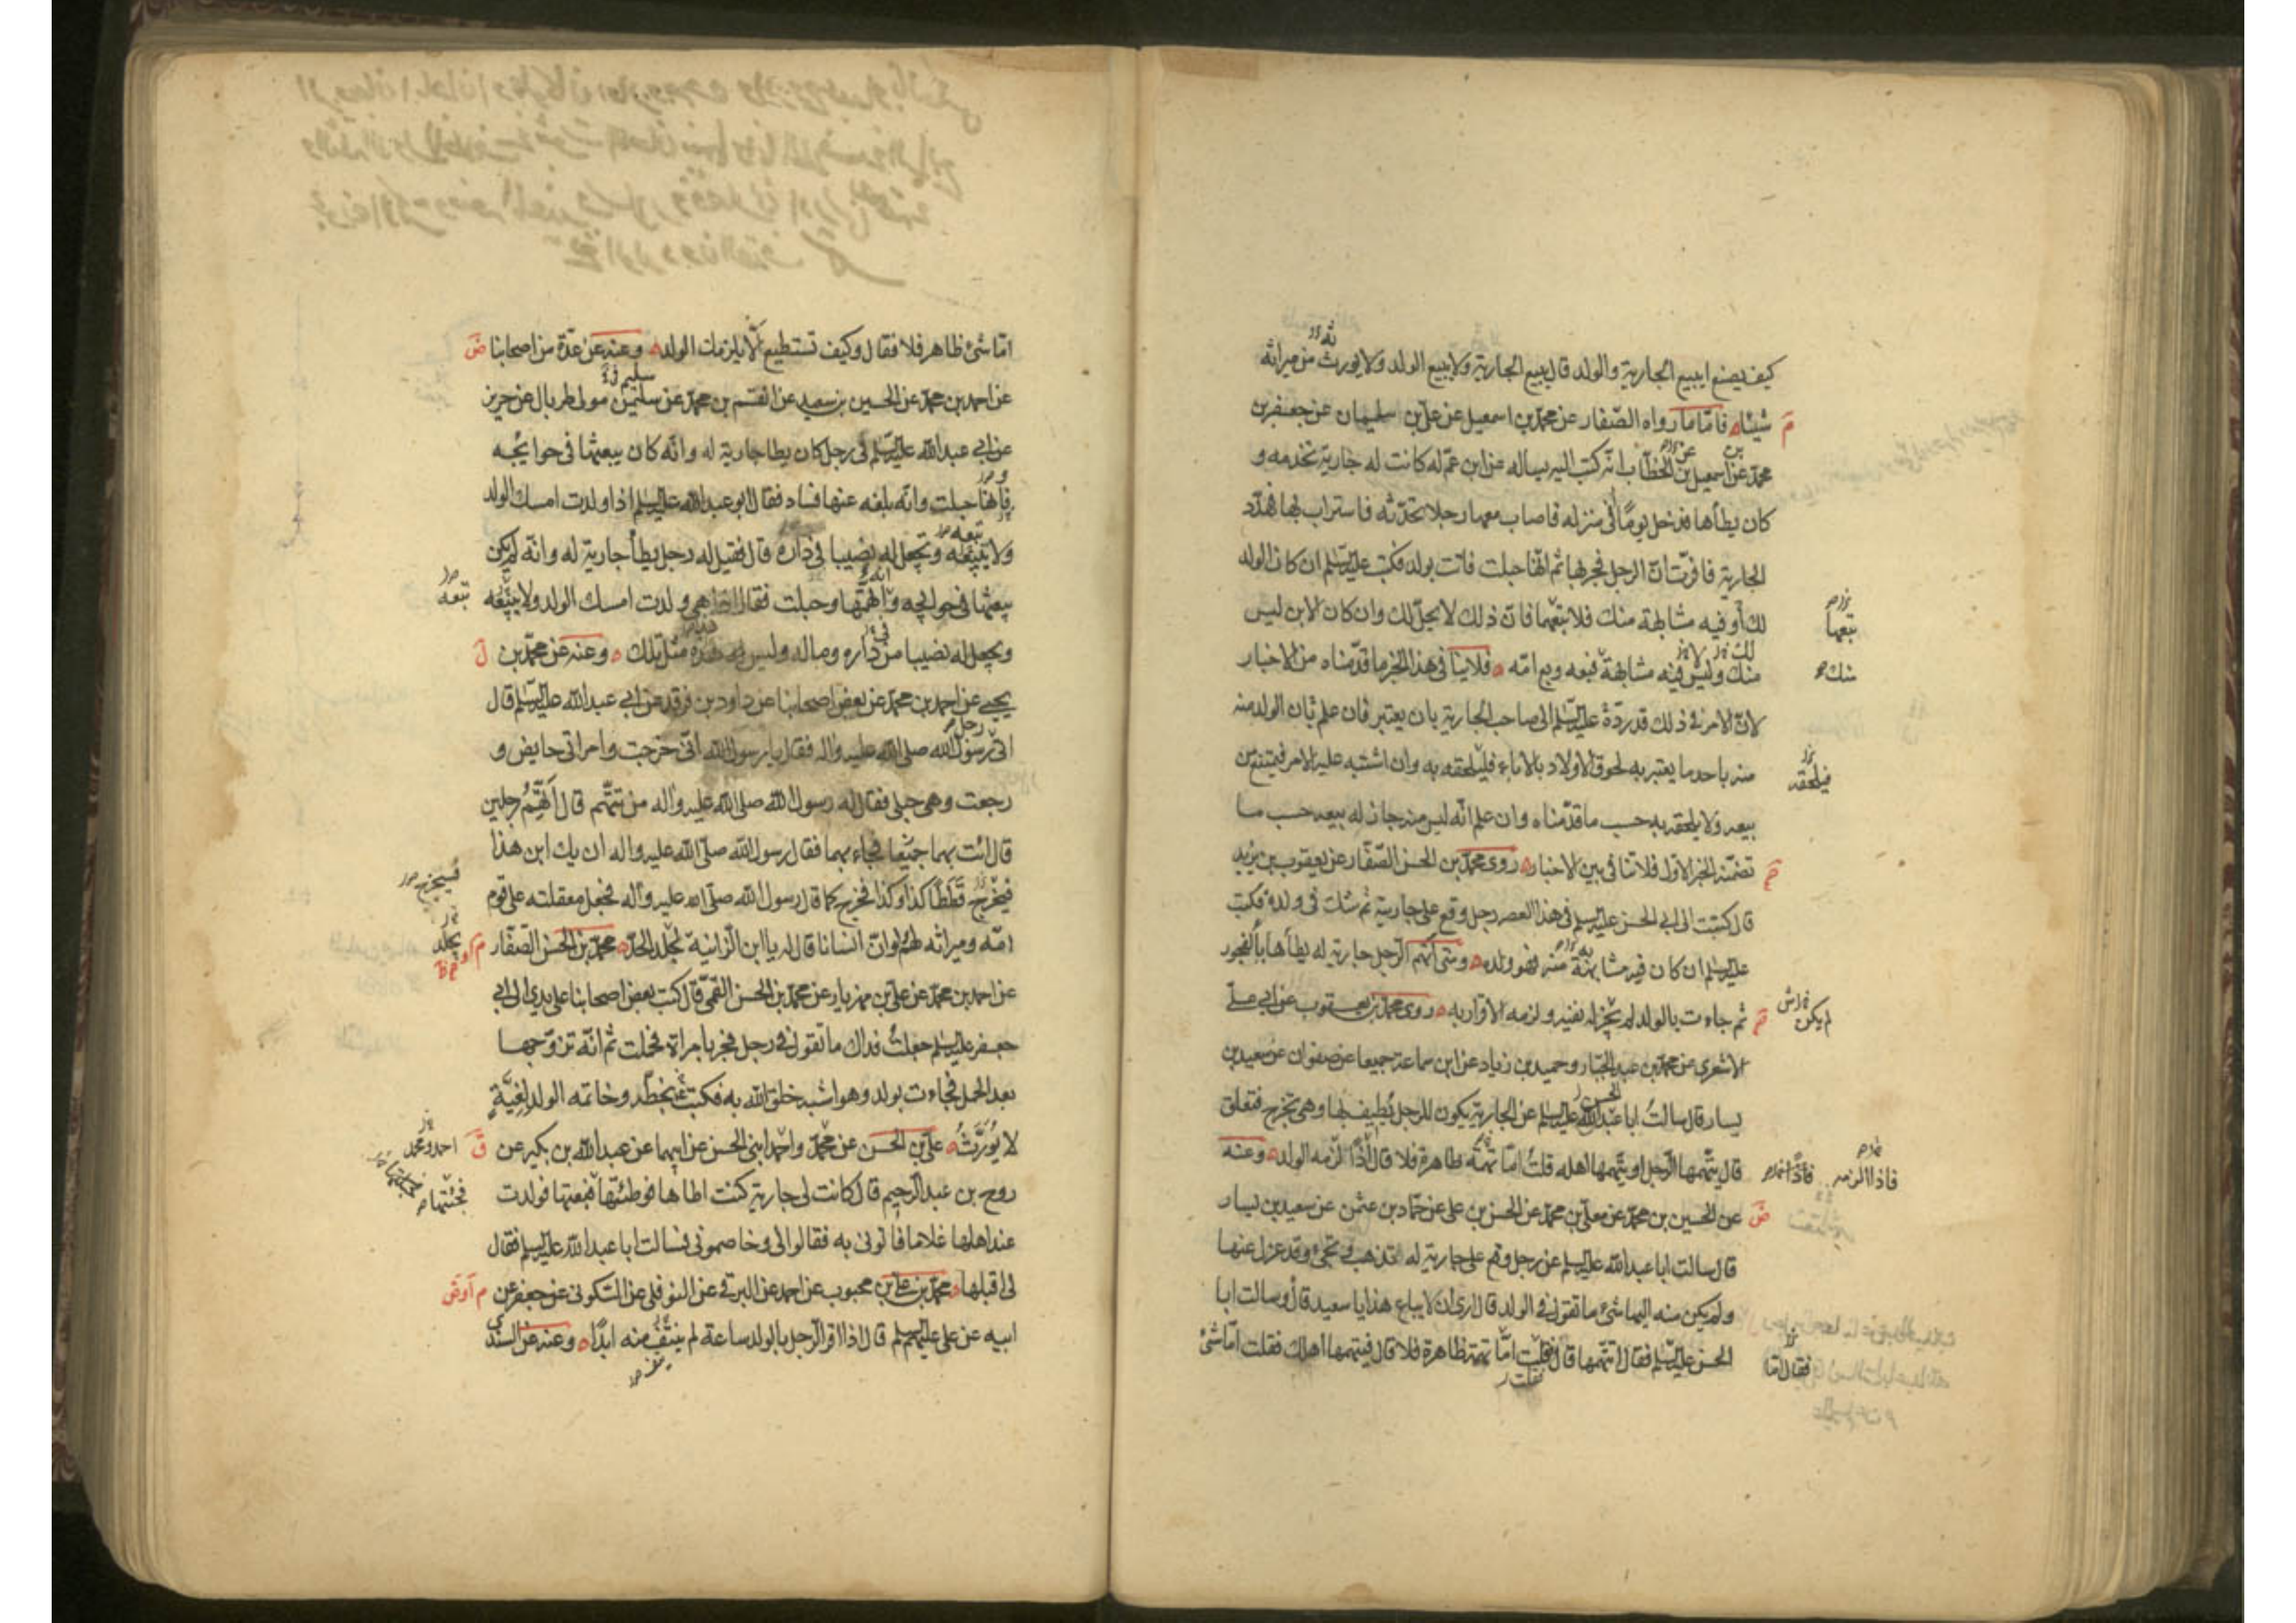 كيف يصنع ايبيع الجارية والولد قال يبيع الجارية ولا يبيع الولد ولا يورث من ميراثه
شيئاه فاما ما رواه الصفار عن محمد بن اسمعيل عن علي بن سليمان عن جعفر بن
محمد عن اسمعيل بن الخطاب انه كتب اليه يساله عن ابن عم له كانت له جارية تخدمه و
كان يطأها فدخل يوما في منزله فاصاب معها رجلا تحدثه فاستراب بها فهدد
الجارية فاقرت ان الرجل فجر بها ثم انها حبلت فاتت بولد فكتب عليه السلم ان كان الولد
لك أو فيه مشابهة منك فلا تبعهما فان ذلك لا يحل لك وان كان الابن ليس
تبعها
منك وليس فيه مشابهة فبعه وبع امه ه فلا ينا في هذا الخبر ما قدمناه من الاخبار
منك
لان الامر في ذلك قد رده عليه السلم الى صاحب الجارية بان يعتبر فان علم بان الولد منه
منه باحد ما يعتبر به لحوق الاولاد بالاباء فليلحقه به وان اشتبه عليه الامر فيمتنع من
فيلحقه
بيعه ولا يلحقه به حسب ما قدمناه وان علم انه ليس منه جاز له بيعه حسب ما
تضمنه الخبر الاول فلا تنا في بين الاخباره روى محمد بن الحسن الصفار عن يعقوب بن يزيد
قال كتبت الى ابي الحسن عليه السلم في هذا العصر رجل وقع على جارية ثم شك في ولده فكتب
عليه السلم ان كان فيه مشابهة منه فهو ولده ه ومتى اتهم الرجل جارية له يطأها بالفجور
ثم جاءت بالولد لم يجز له نفيه ولزمه الاقرار به ه روى محمد بن يعقوب عن ابي علي
لم يكن
الاشعري عن محمد بن عبد الجبار وحميد بن زياد عن ابن سماعة جميعا عن صفوان عن سعيد بن
يسار قال سالت ابا عبد الله عليه السلم عن الجارية يكون للرجل يطيف بها وهي تخرج فتعلق
قال يتهمها الرجل او يتهمها اهله قلت اما تهمة ظاهرة فلا قال اذا لزمه الولد ه وعنه
فاذا الزمه
عن الحسين بن محمد عن معلى بن محمد عن الحسن بن علي عن حماد بن عثمن عن سعيد بن يسار
قال سالت ابا عبد الله عليه السلم عن رجل وقع على جارية له تذهب وتجيء وقد عزل عنها
ولم يكن منه اليها شئ ما تقول في الولد قال ارى ان لا يباع هذا يا سعيد قال وسالت ابا
الحسن عليه السلم فقال اتتهمها قال فقلت اما تهمة ظاهرة فلا قال فيتهمها اهلك فقلت اما شئ
فقال اما
اما شئ ظاهر فلا فقال وكيف تستطيع الا يلزمك الولد ه وعنه عن عدة من اصحابنا
عن احمد بن محمد عن الحسين بن سعيد عن القسم بن محمد عن سليمن مولى طربال عن حريز
عن ابي عبد الله عليه السلم في رجل كان يطا جارية له وانه كان يبعثها في حوايجه
فانها حبلت وانه بلغه عنها فساد فقال ابو عبد الله عليه السلم اذا ولدت امسك الولد
ولا يبيعه وتجعل له نصيبا في داره قال فقيل له رجل يطأ جارية له وانه لم يكن
يبعثها في حوايجه واتهمها وحبلت فقال اذا هي ولدت امسك الولد ولا يبيعه
ويجعل له نصيبا من داره وماله وليس هذه مثل تلك ه وعنه عن محمد بن
يحيى عن احمد بن محمد عن بعض اصحابنا عن داود بن فرقد عن ابي عبد الله عليه السلم قال
اتى رسول الله صلى الله عليه واله فقال يا رسول الله اني خرجت وامراتي حايض و
رجعت وهي حبلى فقال له رسول الله صلى الله عليه واله من تتهم قال اتهم رجلين
قال ائت بهما جميعا فجاء بهما فقال رسول الله صلى الله عليه واله ان يك ابن هذا
فيخرج قططا كذا وكذا فخرج كما قال رسول الله صلى الله عليه وآله فجعل معقلته على قوم
فسيخرج
امه وميراثه لهم ولو ان انسانا قال له يا ابن الزانية لجلد الحد ه محمد بن الحسن الصفار
يجلد
عن احمد بن محمد عن علي بن مهزيار عن محمد بن الحسن القمي قال كتب بعض اصحابنا على يدي الى ابي
جعفر عليه السلم جعلت فداك ما تقول في رجل فجر بامراة فحملت ثم انه تزوجها
بعد الحمل فجاءت بولد وهو اشبه خلق الله به فكتب بخطه وخاتمه الولد لغية
لا يورث ه علي بن الحسن عن محمد واحمد ابني الحسن عن ابيهما عن عبد الله بن بكير عن
احمد ومحمد
روح بن عبد الرحيم قال كانت لي جارية كنت اطاها فوطئتها فبعتها فولدت
عند اهلها غلاما فاتوني به فقالوا لي وخاصموني فسالت ابا عبد الله عليه السلم فقال
لي اقبلها ه محمد بن علي بن محبوب عن احمد عن البرقي عن النوفلي عن السكوني عن جعفر عن
ابيه عن علي عليهم السلم قال اذا اقر الرجل بالولد ساعة لم ينتف منه ابدا ه وعنه عن السندي